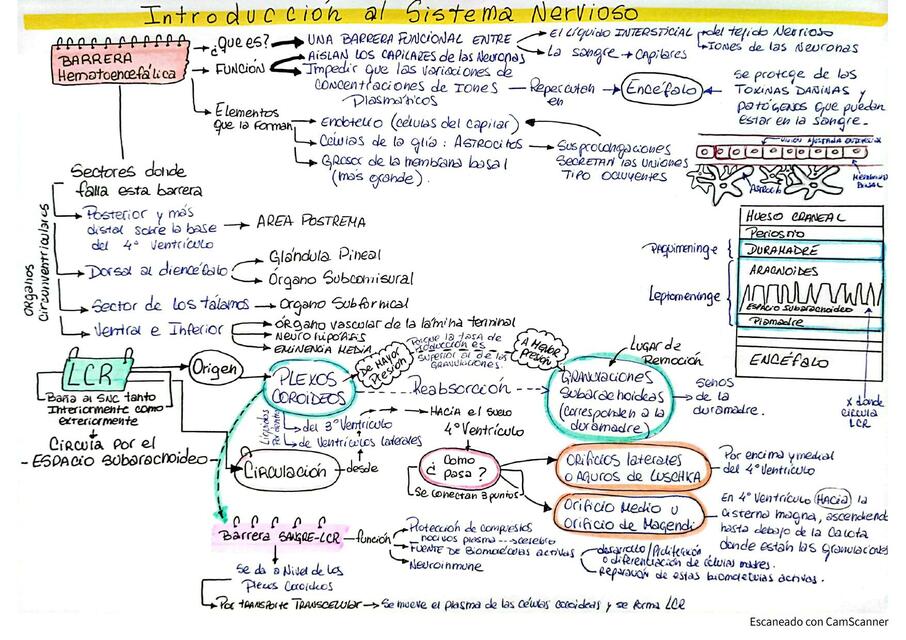 Introducción al Sistema Nervioso
BARRERA
Hematoencefálica
¿que es?
UNA BARRERA FUNCIONAL ENTRE
el Líquido INTERSTICIAL
del tejido Nervioso
Iones de las Neuronas
La sangre → Capilares
FUNCIÓN
AISLAN LOS CAPILAZES de las Neuronas
Impedir que las variaciones de
concentraciones de IONES
Plasmáticos
Repercutan
en
Encéfalo
se protege de las
TOXINAS DAÑINAS y
patógenos que puedan
estar en la sangre.
Elementos
que la forman
Endotelio (células del capilar)
Células de la glia: Astrocitos
Grosor de la membrana basal
(más grande).
Sus prolongaciones
secretan las uniones
tipo ocluyentes
Sectores donde
falla esta barrera
ORGANOS
Circunventriculares
Posterior y más
distal sobre la base
del 4° Ventrículo
AREA POSTREMA
Dorsal al diencéfalo
Glándula Pineal
Órgano Subcomisural
Sector de los tálamos
Organo Subfornical
Ventral e Inferior
órgano vascular de la lamina terminal
Neuro hipófisis
EMINENCIA MEDIA
HUESO CRANEAL
Periostio
DURAMADRE
ARACNOIDES
ESPACIO Subaracnoideo
Piamadre
ENCÉFALO
Paquimeninge
Leptomeninge
x donde
circula
LCR
LCR
Origen
PLEXOS
COROIDEOS
De mayor
Presión
Porque la tasa de
producción es
superior al de las
granulaciones.
A menor
presión
Lugar de
Remoción
Reabsorción
GRANULACIONES
Subaracnoideas
(corresponden a la
duramadre)
senos
de la
duramadre.
Baña al SNC tanto
Interiormente como
exteriormente
Circula por el
ESPACIO Subaracnoideo
del 3° Ventrículo
de Ventrículos laterales
Circulación
desde
Hacia el suelo
4° Ventrículo
¿Como
pasa?
Se conectan 3 puntos
Orificios laterales
o Aguros de LUSCHKA
Por encima y medial
del 4° Ventrículo
Orificio Medio o
Orificio de Magendi
En 4° Ventrículo Hacia la
cisterna magna, ascendiende
hasta debajo de la Calota
donde están las Granulaciones
Barrera SANGRE-LCR
función
Protección de compuestos
nocivos plasma → cerebro
FUENTE DE Biomoléculas activas
Neuroinmune
desarrollo/Proliferación
o diferenciación de células madres.
reparación de estas biomoléculas activas.
se da a Nivel de los
Plexos Coroideos
Por TRANSPORTE TRANSCELULAR → Se mueve el plasma de las células coroideas y se forma LCR
Escaneado con CamScanner